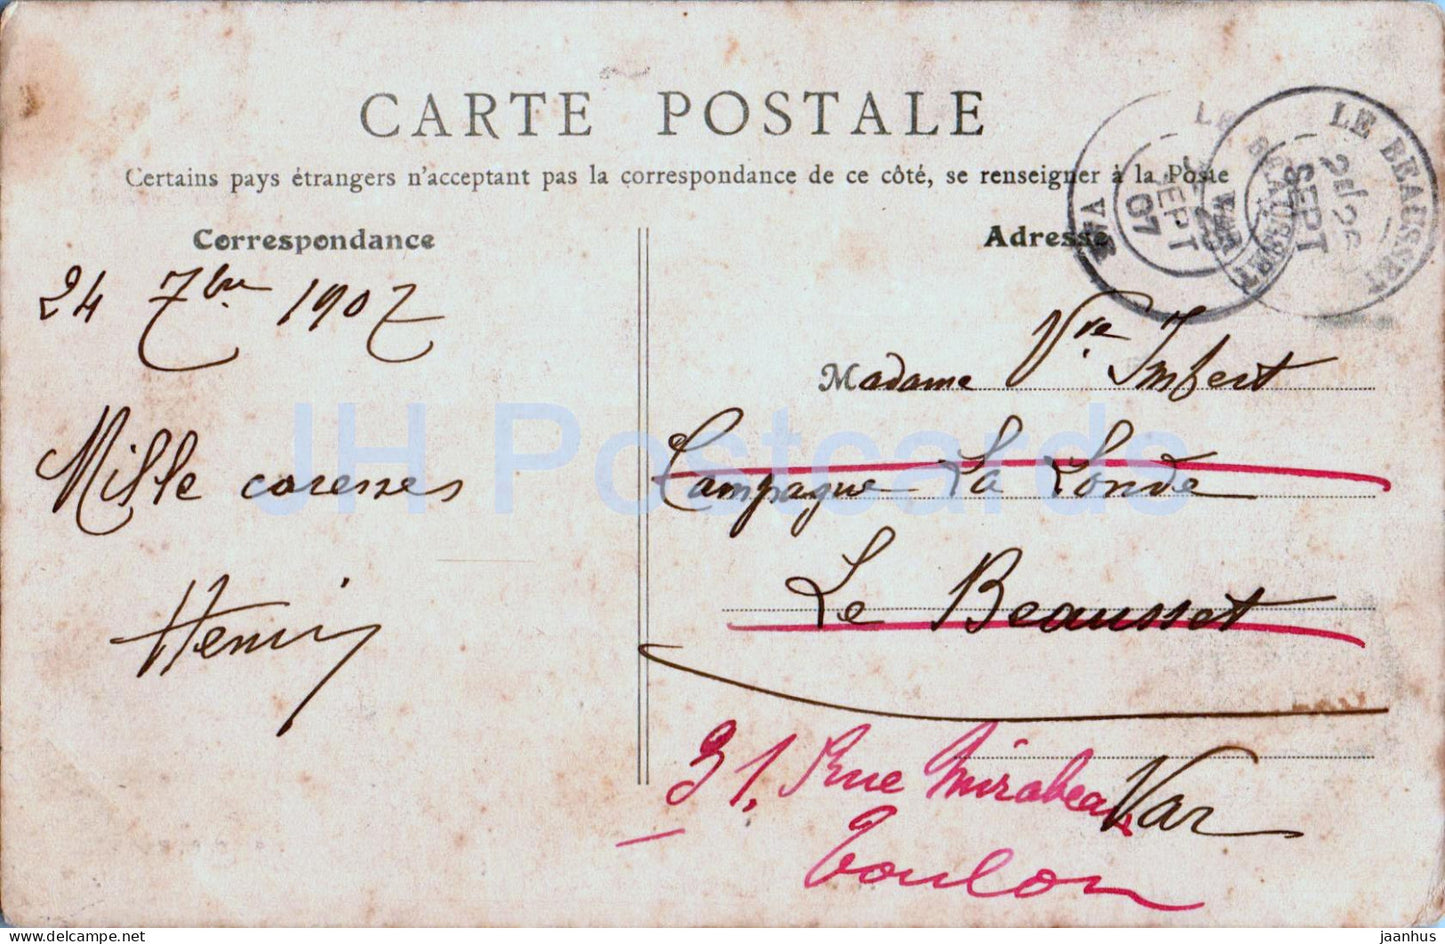 CARTE POSTALE
Certains pays étrangers n'acceptant pas la correspondance de ce côté, se renseigner à la Poste
Correspondance
Adresse
24 7bre 1907
Mille caresses
Henri
Madame Vve Imbert
Campagne La Londe
Le Beausset
Var
31, Rue Mirabeau
Toulon
LE BEAUSSET
SEPT
07
VAR
LE BEAUSSET
SEPT
VAR
JH Postcards
jaanhus © delcampe.net